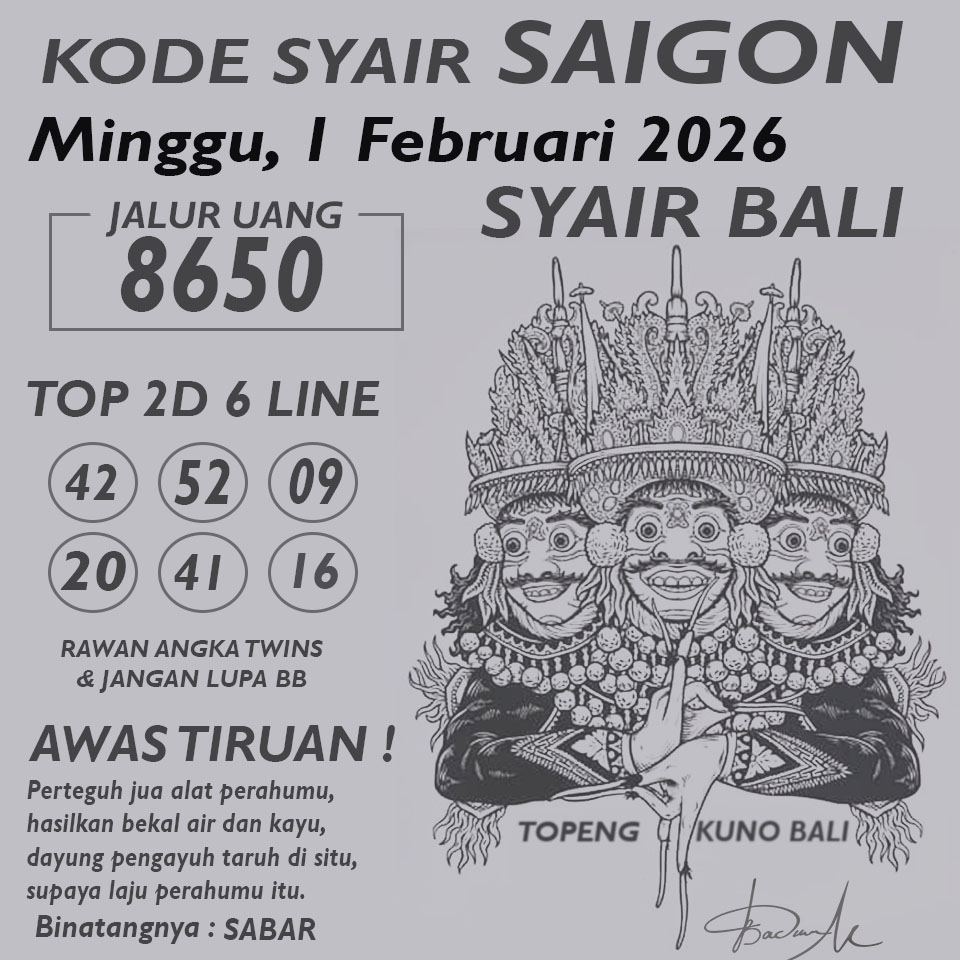 KODE SYAIR SAIGON
Minggu, 1 Februari 2026
SYAIR BALI
JALUR UANG
8650
TOP 2D 6 LINE
42 52 09
20 41 16
RAWAN ANGKA TWINS
& JANGAN LUPA BB
AWAS TIRUAN !
Perteguh jua alat perahumu,
hasilkan bekal air dan kayu,
dayung pengayuh taruh di situ,
supaya laju perahumu itu.
Binatangnya : SABAR
TOPENG KUNO BALI